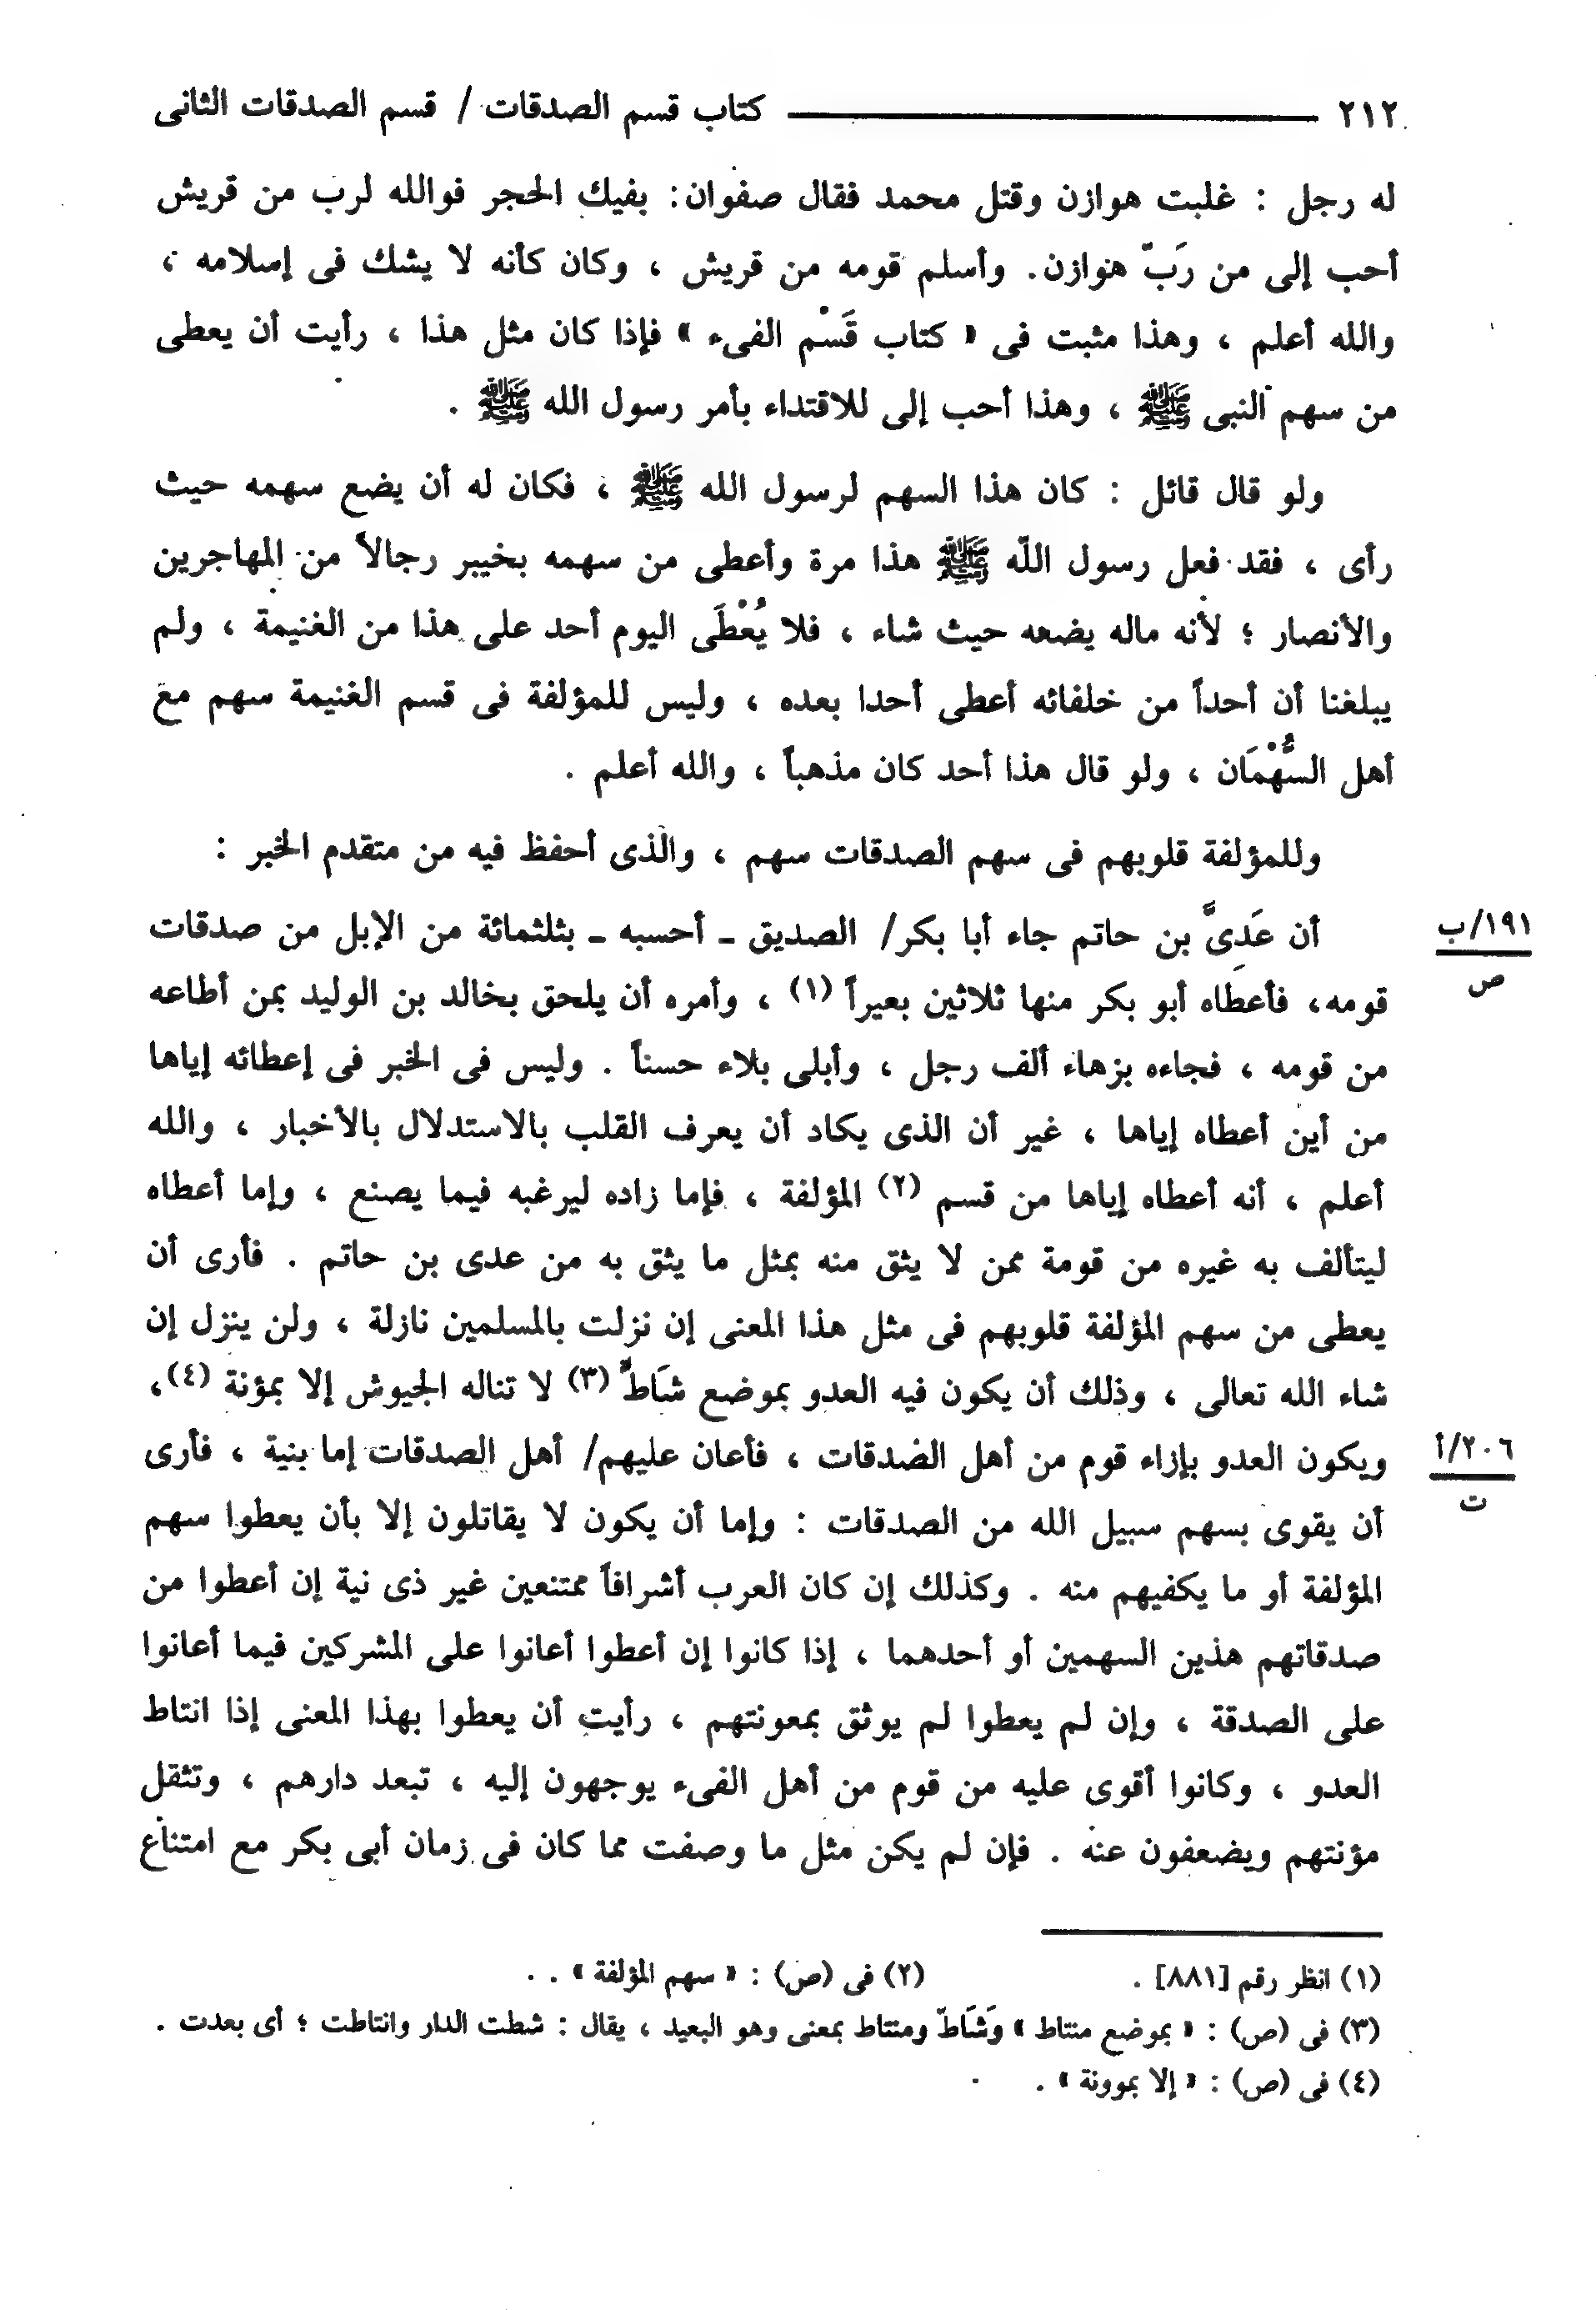 ٢١٢ كتاب قسم الصدقات / قسم الصدقات الثانى
له رجل : غلبت هوازن وقتل محمد فقال صفوان: بفيك الحجر فوالله لرب من قريش
أحب إلى من رَبّ هوازن. وأسلم قومه من قريش ، وكان كأنه لا يشك فى إسلامه ،
والله أعلم ، وهذا مثبت فى « كتاب قَسْم الفىء » فإذا كان مثل هذا ، رأيت أن يعطى
من سهم النبى ﷺ ، وهذا أحب إلى للاقتداء بأمر رسول الله ﷺ .
ولو قال قائل : كان هذا السهم لرسول الله ﷺ ، فكان له أن يضع سهمه حيث
رأى ، فقد فعل رسول اللّه ﷺ هذا مرة وأعطى من سهمه بخيبر رجالاً من المهاجرين
والأنصار ؛ لأنه ماله يضعه حيث شاء ، فلا يُعْطَى اليوم أحد على هذا من الغنيمة ، ولم
يبلغنا أن أحداً من خلفائه أعطى أحدا بعده ، وليس للمؤلفة فى قسم الغنيمة سهم مع
أهل السُّهْمَان ، ولو قال هذا أحد كان مذهباً ، والله أعلم .
وللمؤلفة قلوبهم فى سهم الصدقات سهم ، والذى أحفظ فيه من متقدم الخبر :
أن عَدِىَّ بن حاتم جاء أبا بكر/ الصديق ـ أحسبه ـ بثلثمائة من الإبل من صدقات
١٩١/ب
ص
قومه، فأعطاه أبو بكر منها ثلاثين بعيراً (١) ، وأمره أن يلحق بخالد بن الوليد بمن أطاعه
من قومه ، فجاءه بزهاء ألف رجل ، وأبلى بلاء حسناً . وليس فى الخبر فى إعطائه إياها
من أين أعطاه إياها ، غير أن الذى يكاد أن يعرف القلب بالاستدلال بالأخبار ، والله
أعلم ، أنه أعطاه إياها من قسم (٢) المؤلفة ، فإما زاده ليرغبه فيما يصنع ، وإما أعطاه
ليتألف به غيره من قومة ممن لا يثق منه بمثل ما يثق به من عدى بن حاتم . فأرى أن
يعطى من سهم المؤلفة قلوبهم فى مثل هذا المعنى إن نزلت بالمسلمين نازلة ، ولن ينزل إن
شاء الله تعالى ، وذلك أن يكون فيه العدو بموضع شَاطٍّ (٣) لا تناله الجيوش إلا بمؤنة (٤)،
ويكون العدو بإزاء قوم من أهل الصدقات ، فأعان عليهم/ أهل الصدقات إما بنية ، فأرى
٢٠٦/أ
ت
أن يقوى بسهم سبيل الله من الصدقات : وإما أن يكون لا يقاتلون إلا بأن يعطوا سهم
المؤلفة أو ما يكفيهم منه . وكذلك إن كان العرب أشرافاً ممتنعين غير ذى نية إن أعطوا من
صدقاتهم هذين السهمين أو أحدهما ، إذا كانوا إن أعطوا أعانوا على المشركين فيما أعانوا
على الصدقة ، وإن لم يعطوا لم يوثق بمعونتهم ، رأيت أن يعطوا بهذا المعنى إذا انتاط
العدو ، وكانوا أقوى عليه من قوم من أهل الفىء يوجهون إليه ، تبعد دارهم ، وتثقل
مؤنتهم ويضعفون عنه . فإن لم يكن مثل ما وصفت مما كان فى زمان أبى بكر مع امتناع
(١) انظر رقم [٨٨١] . (٢) فى (ص) : « سهم المؤلفة » .
(٣) فى (ص) : « بموضع منتاط » وَشَاطّ ومنتاط بمعنى وهو البعيد ، يقال : شطت الدار وانتاطت ؛ أى بعدت .
(٤) فى (ص) : « إلا بموونة » .